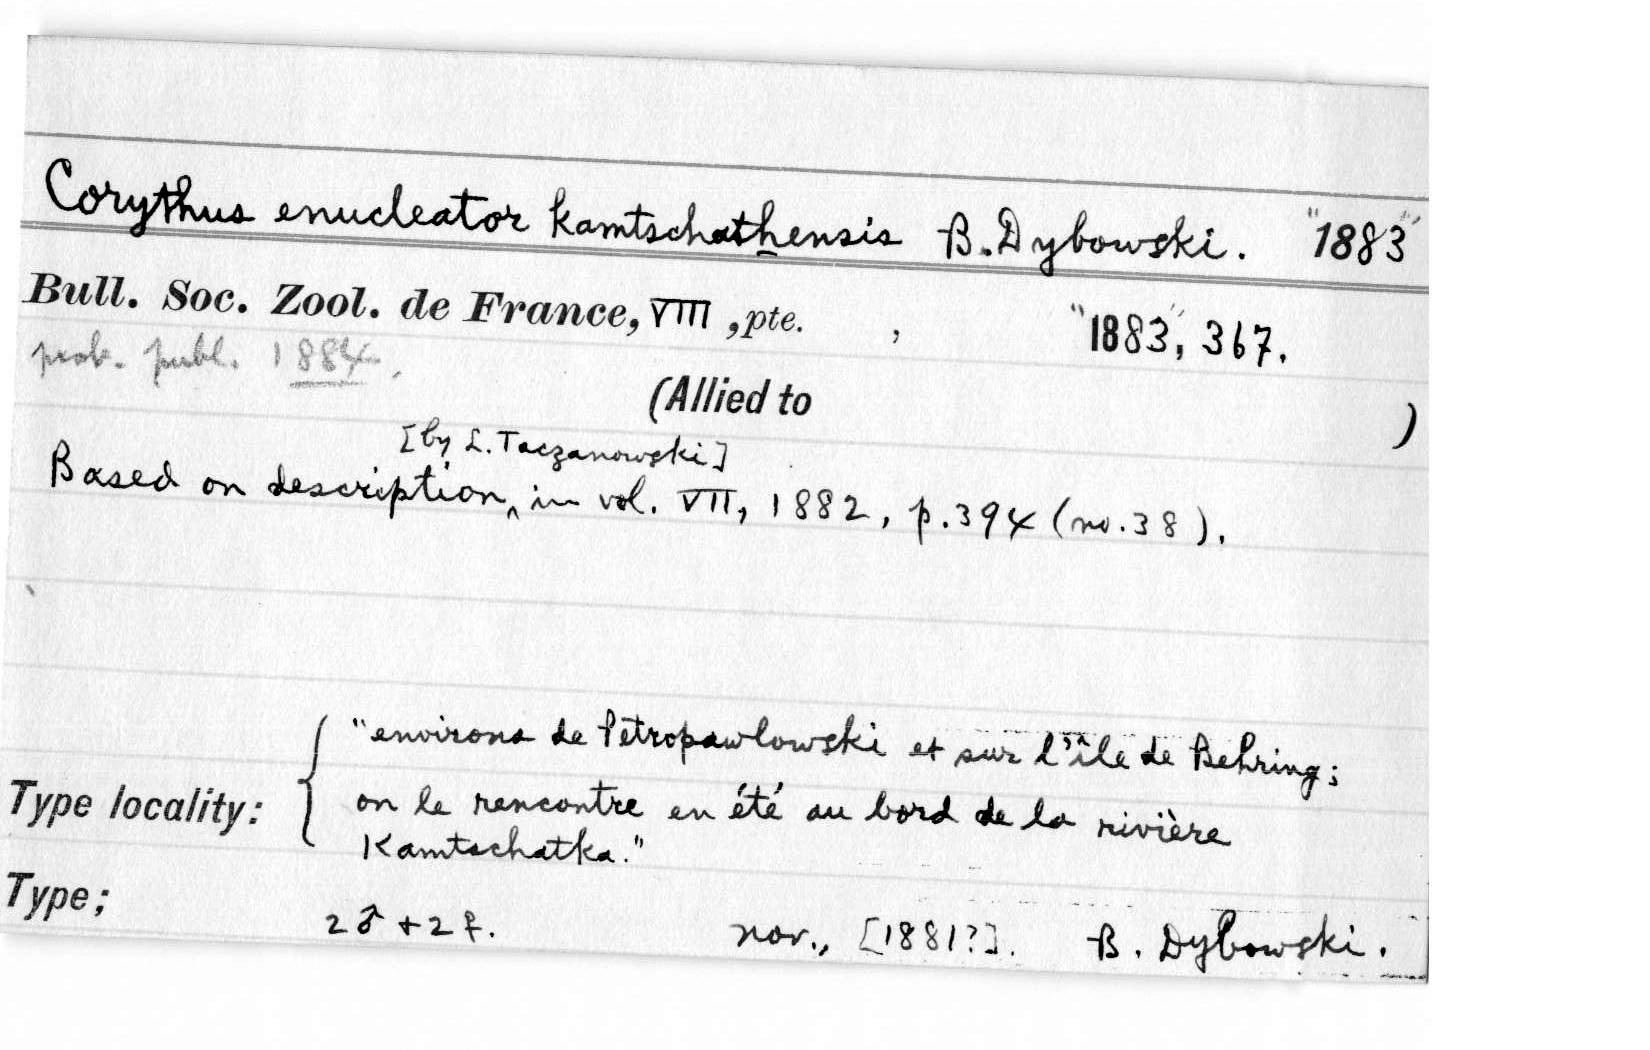 Corythus enucleator kamtschathensis B. Dybowski. "1883"
Bull. Soc. Zool. de France, VIII, pte. , "1883", 367.
prob. publ. 1884.
(Allied to )
[by L. Taczanowski]
Based on description‸ in vol. VII, 1882, p. 394 (no. 38).
"environs de Pétropawlowski et sur l'île de Behring;
Type locality: { on le rencontre en été au bord de la rivière
Kamtschatka."
Type;
2♂ + 2♀. nov., [1881?]. B. Dybowski.